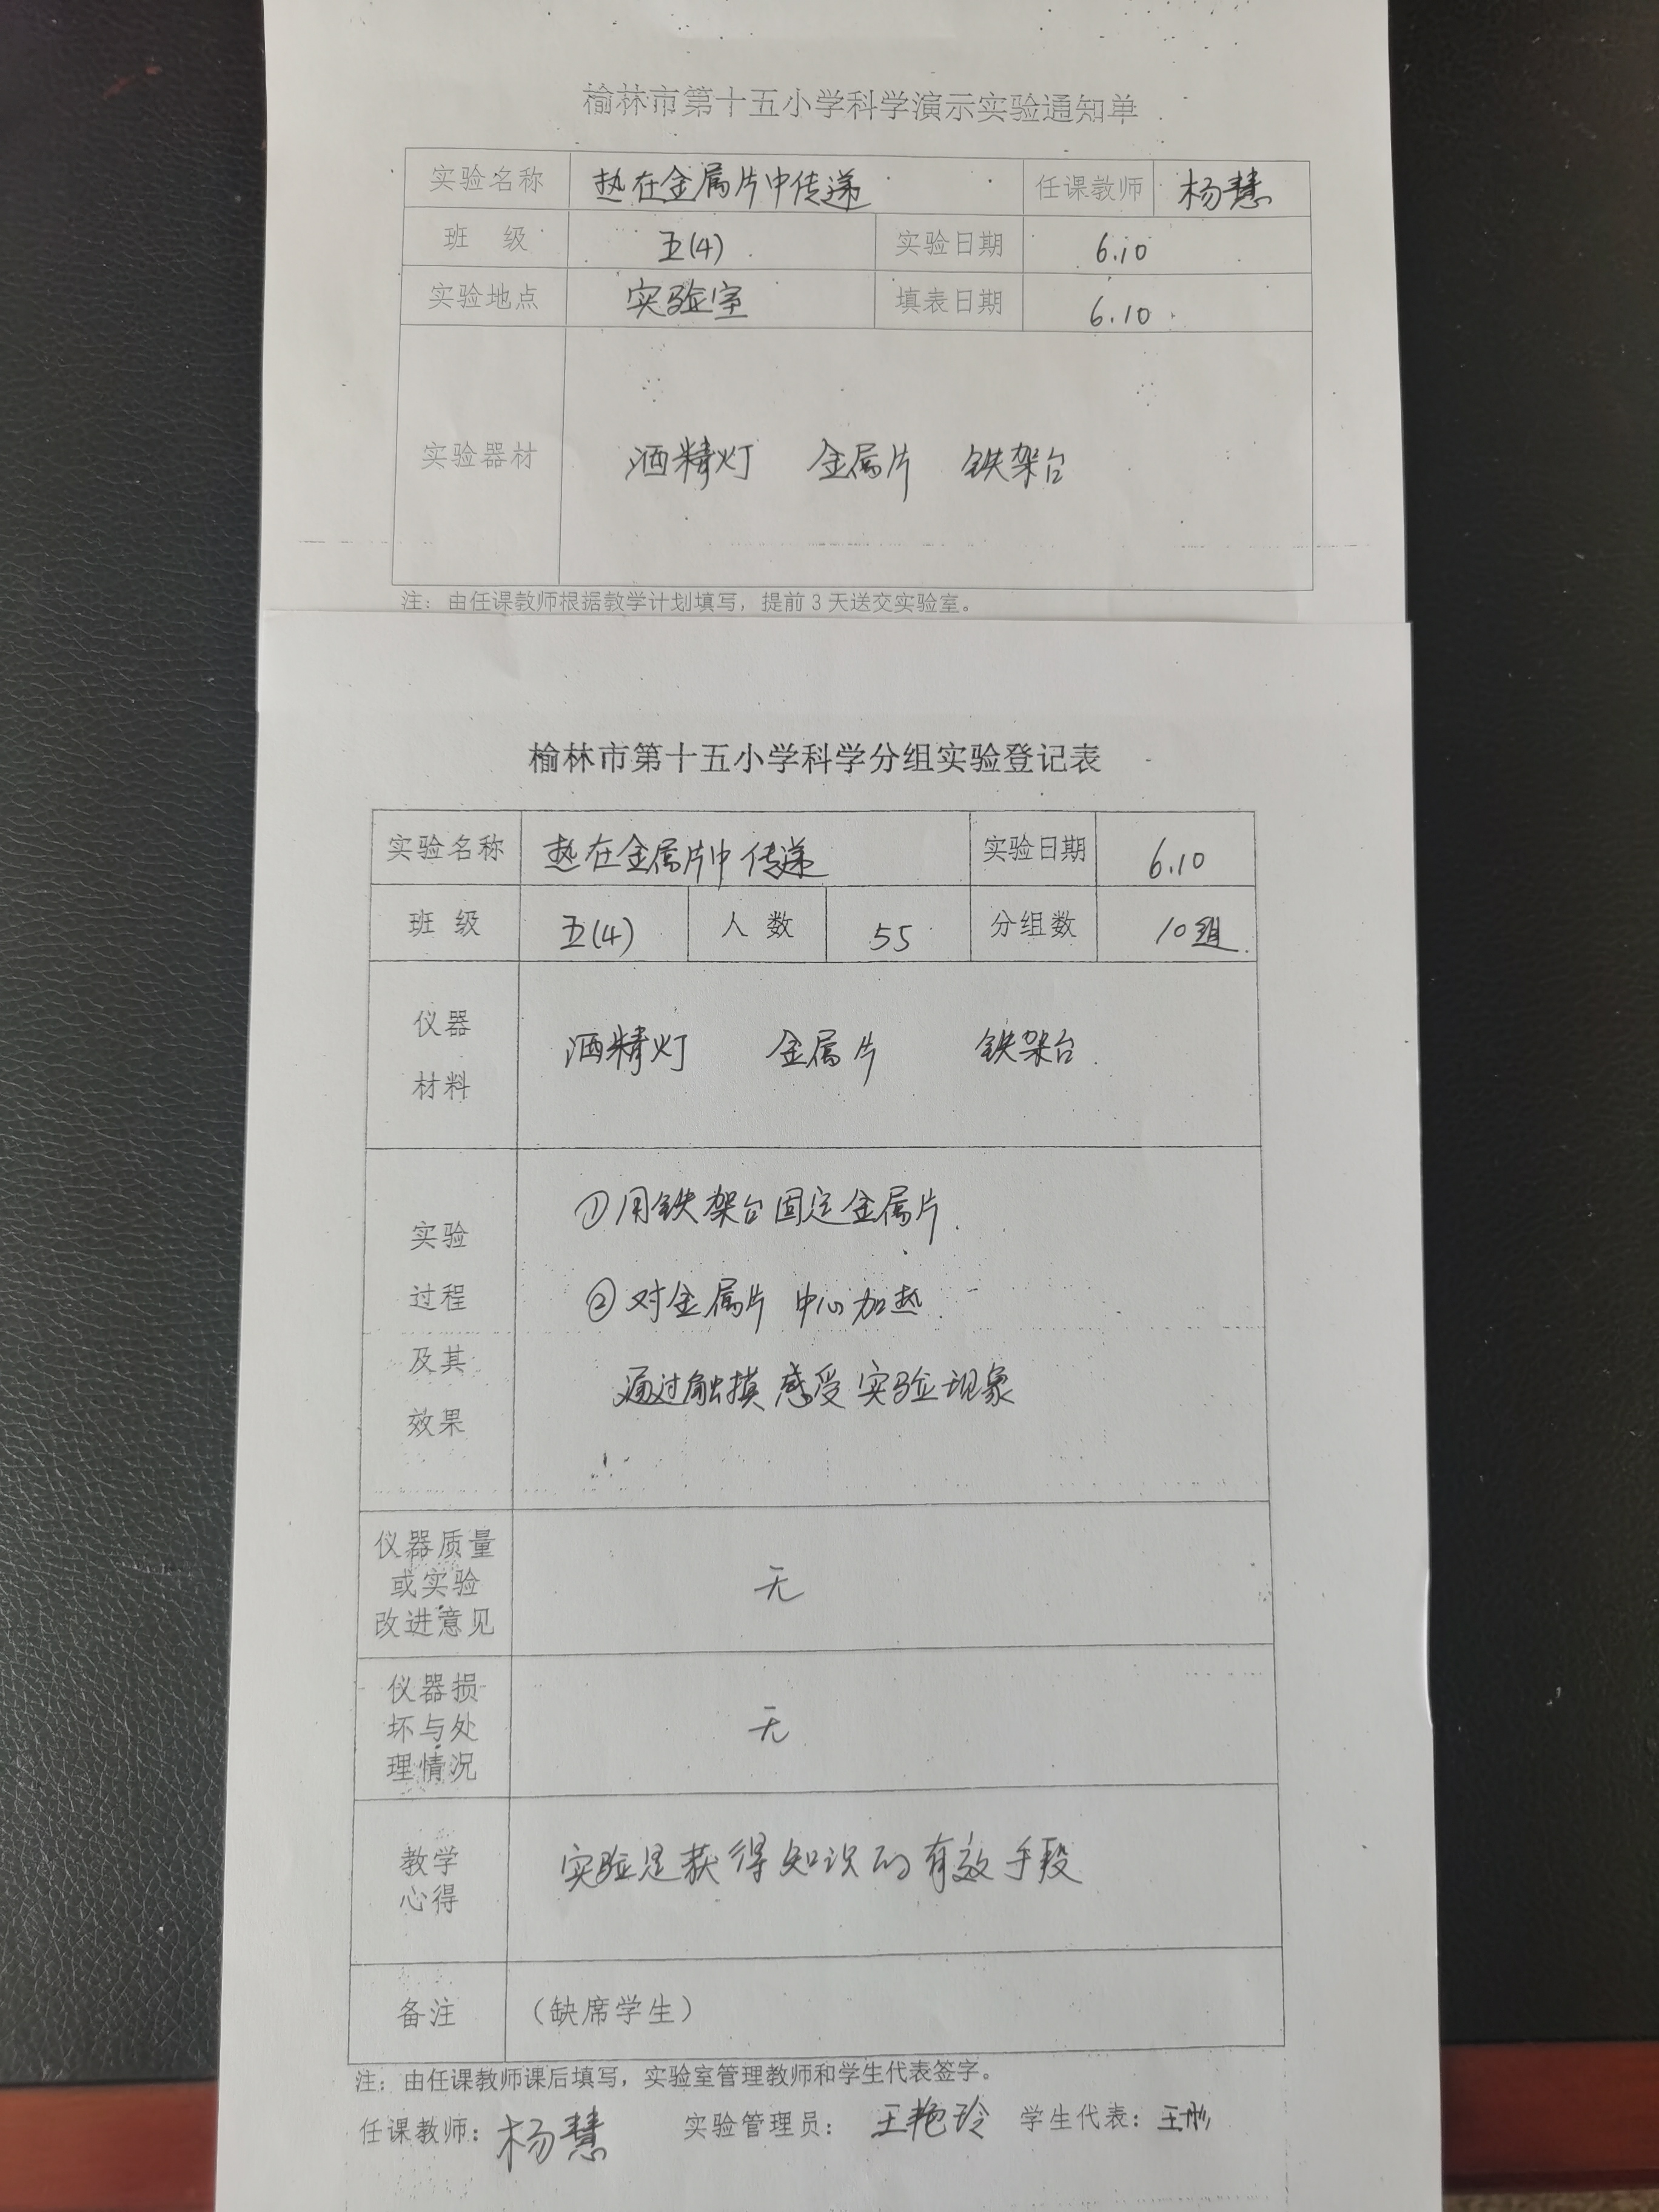 榆林市第十五小学科学演示实验通知单
实验名称 热在金属片中传递 任课教师 杨慧
班 级 五(4) 实验日期 6.10
实验地点 实验室 填表日期 6.10
实验器材 酒精灯 金属片 铁架台
注：由任课教师根据教学计划填写，提前3天送交实验室。
榆林市第十五小学科学分组实验登记表
实验名称 热在金属片中传递 实验日期 6.10
班 级 五(4) 人 数 55 分组数 10组
仪器
材料
酒精灯 金属片 铁架台
实验
过程
及其
效果
①用铁架台固定金属片.
②对金属片中心加热.
通过触摸感受实验现象
仪器质量
或实验
改进意见
无
仪器损
坏与处
理情况
无
教学
心得
实验是获得知识的有效手段
备注 （缺席学生）
注：由任课教师课后填写，实验室管理教师和学生代表签字。
任课教师：杨慧 实验管理员：王艳玲 学生代表：王彤